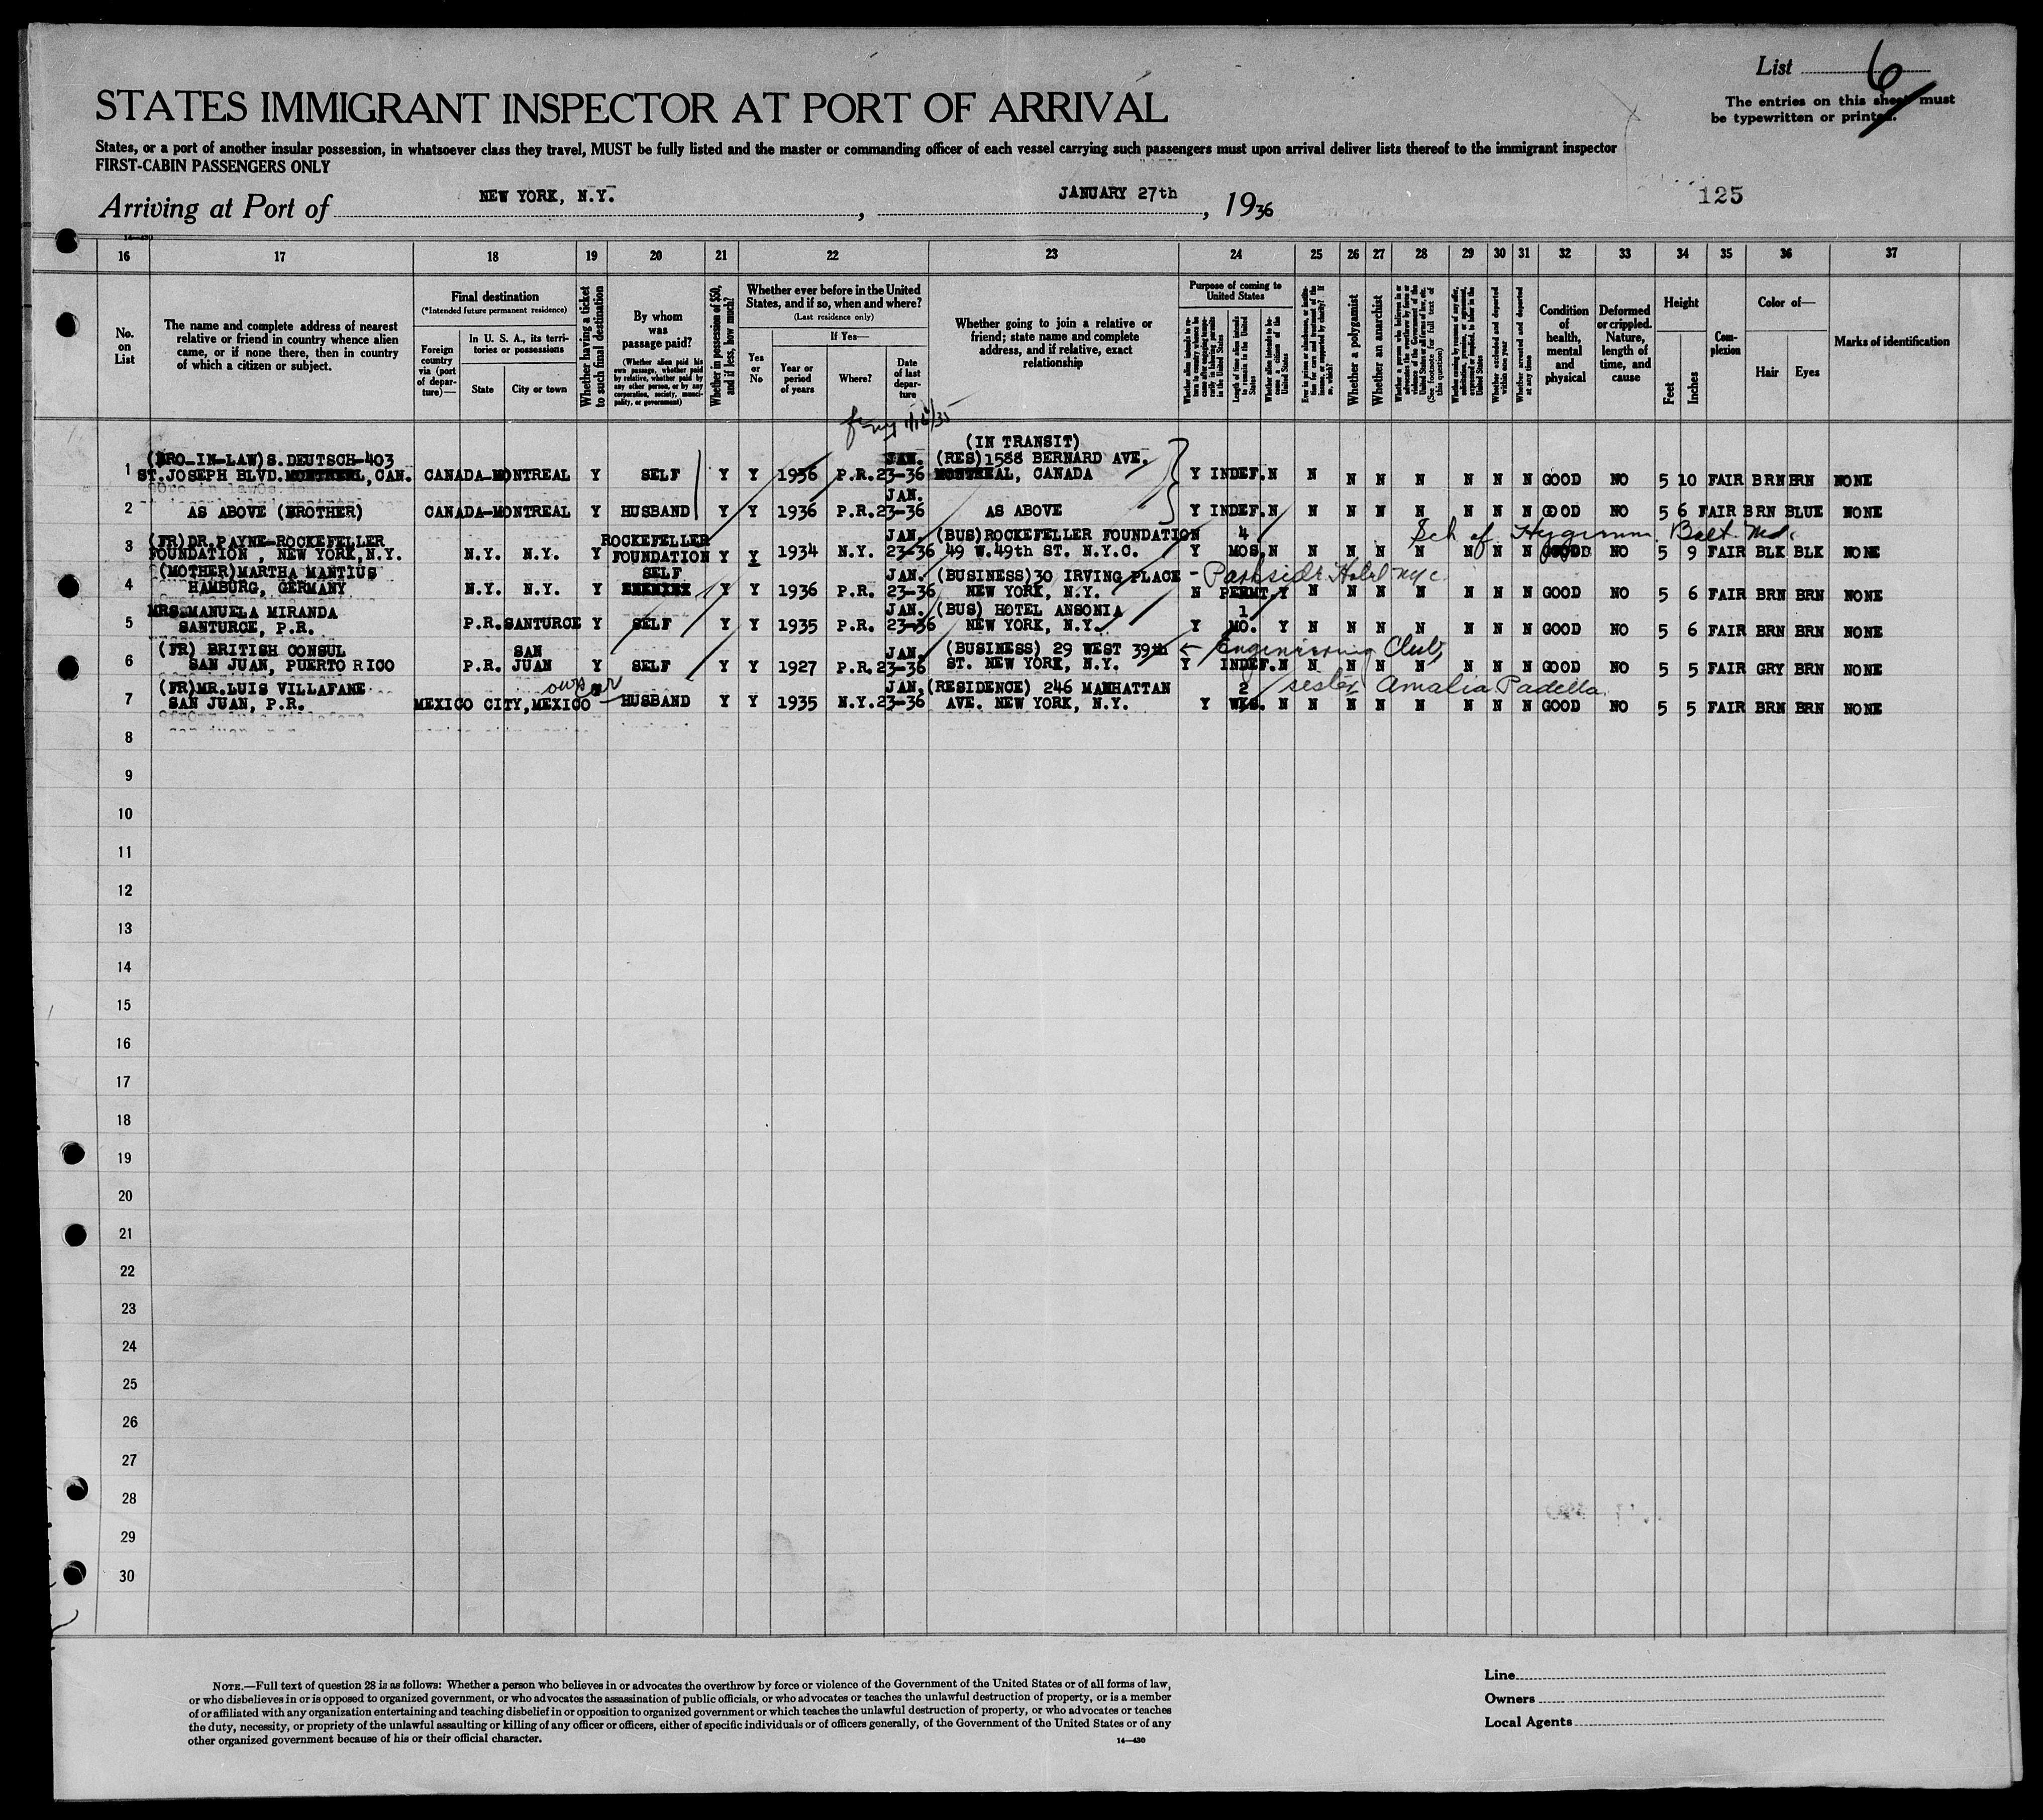 List 6
The entries on this sheet must
be typewritten or printed.
STATES IMMIGRANT INSPECTOR AT PORT OF ARRIVAL
States, or a port of another insular possession, in whatsoever class they travel, MUST be fully listed and the master or commanding officer of each vessel carrying such passengers must upon arrival deliver lists thereof to the immigrant inspector
FIRST-CABIN PASSENGERS ONLY
Arriving at Port of NEW YORK, N.Y. , JANUARY 27th , 1936
125
14—430
16 17 18 19 20 21 22 23 24 25 26 27 28 29 30 31 32 33 34 35 36 37
No. on List
The name and complete address of nearest
relative or friend in country whence alien
came, or if none there, then in country
of which a citizen or subject.
Final destination
(*Intended future permanent residence)
Foreign country via (port of departure)—
In U. S. A., its territories or possessions
State
City or town
Whether having a ticket to such final destination
By whom was passage paid?
(Whether alien paid his own passage, whether paid by relative, whether paid by any other person, or by any corporation, society, municipality, or government)
Whether in possession of $50, and if less, how much?
Whether ever before in the United States, and if so, when and where?
(Last residence only)
Yes or No
If Yes—
Year or period of years
Where?
Date of last departure
Whether going to join a relative or
friend; state name and complete
address, and if relative, exact
relationship
Purpose of coming to United States
Whether alien intends to return to country whence he came after engaging temporarily in laboring pursuits in the United States
Length of time alien intends to remain in the United States
Whether alien intends to become a citizen of the United States
Ever in prison or almshouse, or institution for care and treatment of the insane, or supported by charity? If so, which?
Whether a polygamist
Whether an anarchist
Whether a person who believes in or advocates the overthrow by force or violence of the Government of the United States or all forms of law, etc. (See footnote for full text of this question)
Whether coming by reason of any offer, solicitation, promise, or agreement, expressed or implied, to labor in the United States
Whether excluded and deported within one year
Whether arrested and deported at any time
Condition of health, mental and physical
Deformed or crippled. Nature, length of time, and cause
Height
Feet
Inches
Complexion
Color of—
Hair
Eyes
Marks of identification
1/16/35
(IN TRANSIT)
(BRO-IN-LAW)S.DEUTSCH-403 JAN. (RES)1588 BERNARD AVE.
1 ST.JOSEPH BLVD.MONTREAL,CAN. CANADA-MONTREAL Y SELF Y Y 1936 P.R. 23-36 MONTREAL, CANADA Y INDEF. N N N N N N N N GOOD NO 5 10 FAIR BRN BRN NONE
JAN.
2 AS ABOVE (BROTHER) CANADA-MONTREAL Y HUSBAND Y Y 1936 P.R. 23-36 AS ABOVE Y INDEF. N N N N N N N N GOOD NO 5 6 FAIR BRN BLUE NONE
(FR)DR.PAYNE-ROCKEFELLER ROCKEFELLER JAN. (BUS)ROCKEFELLER FOUNDATION 4 Sch of Hygiene Balt Md.
3 FOUNDATION, NEW YORK,N.Y. N.Y. N.Y. Y FOUNDATION Y Y 1934 N.Y. 23-36 49 W.49th ST. N.Y.C. Y MOS. N N N N N N N N GOOD NO 5 9 FAIR BLK BLK NONE
(MOTHER)MARTHA MANTIUS SELF JAN. (BUSINESS)30 IRVING PLACE - Parkside Hotel NYC
4 HAMBURG, GERMANY N.Y. N.Y. Y Y Y 1936 P.R. 23-36 NEW YORK, N.Y. N PERMT. Y N N N N N N N GOOD NO 5 6 FAIR BRN BRN NONE
MRS.MANUELA MIRANDA JAN. (BUS) HOTEL ANSONIA 1
5 SANTURCE, P.R. P.R. SANTURCE Y SELF Y Y 1935 P.R. 23-36 NEW YORK, N.Y. Y MO. Y N N N N N N N GOOD NO 5 6 FAIR BRN BRN NONE
(FR) BRITISH CONSUL SAN JAN. (BUSINESS) 29 WEST 39th Engineering Club
6 SAN JUAN, PUERTO RICO P.R. JUAN Y SELF Y Y 1927 P.R. 23-36 ST. NEW YORK, N.Y. Y INDEF. N N N N N N N N GOOD NO 5 5 FAIR GRY BRN NONE
(FR)MR.LUIS VILLAFANE own car JAN. (RESIDENCE) 246 MANHATTAN 2 sister Amalia Padella
7 SAN JUAN, P.R. MEXICO CITY, MEXICO HUSBAND Y Y 1935 N.Y. 23-36 AVE. NEW YORK, N.Y. Y WKS. N N N N N N N N GOOD NO 5 5 FAIR BRN BRN NONE
8
9
10
11
12
13
14
15
16
17
18
19
20
21
22
23
24
25
26
27
28
29
30
NOTE.—Full text of question 28 is as follows: Whether a person who believes in or advocates the overthrow by force or violence of the Government of the United States or of all forms of law,
or who disbelieves in or is opposed to organized government, or who advocates the assassination of public officials, or who advocates or teaches the unlawful destruction of property, or is a member
of or affiliated with any organization entertaining and teaching disbelief in or opposition to organized government or which teaches the unlawful destruction of property, or who advocates or teaches
the duty, necessity, or propriety of the unlawful assaulting or killing of any officer or officers, either of specific individuals or of officers generally, of the Government of the United States or of any
other organized government because of his or their official character.
14—430
Line
Owners
Local Agents